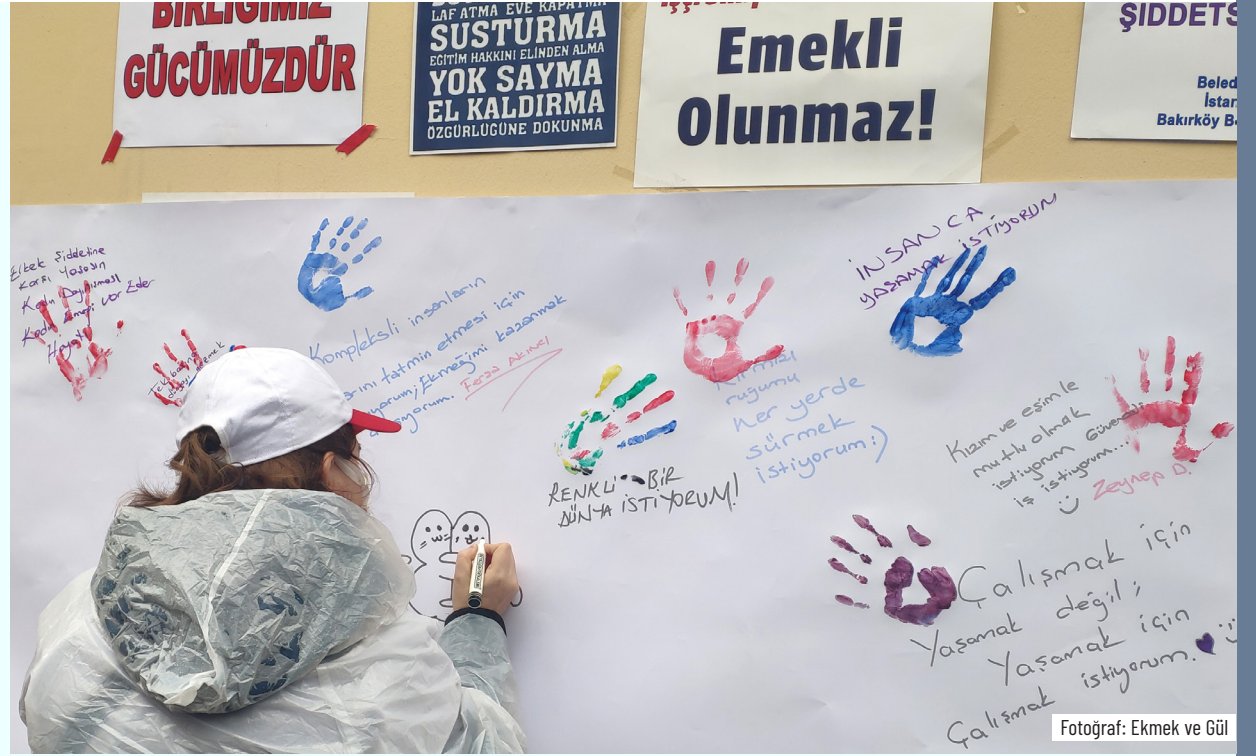 BİRLİĞİMİZ
GÜCÜMÜZDÜR
LAF ATMA EVE KAPATMA
SUSTURMA
EĞİTİM HAKKINI ELİNDEN ALMA
YOK SAYMA
EL KALDIRMA
ÖZGÜRLÜĞÜNE DOKUNMA
Emekli
Olunmaz!
ŞİDDETS
Beled
İstan
Bakırköy B
Erkek Şiddetine
Karşı Yaşasın
Kadın Dayanışması
Kadın Emeği Var Eder
Hayatı
Tek başına
Kompleksli insanların
tatmin etmesi için
Ekmeğimi kazanmak
RENKLİ BİR
DÜNYA İSTİYORUM!
Kırmızı
rugumu
her yerde
sürmek
istiyorum:)
İNSANCA
YAŞAMAK İSTİYORUM
Kızım ve eşimle
mutlu olmak
istiyorum Güvenli
iş istiyorum...
Zeynep D.
Çalışmak için
Yaşamak değil;
Yaşamak için
Çalışmak istiyorum.
Fotoğraf: Ekmek ve Gül